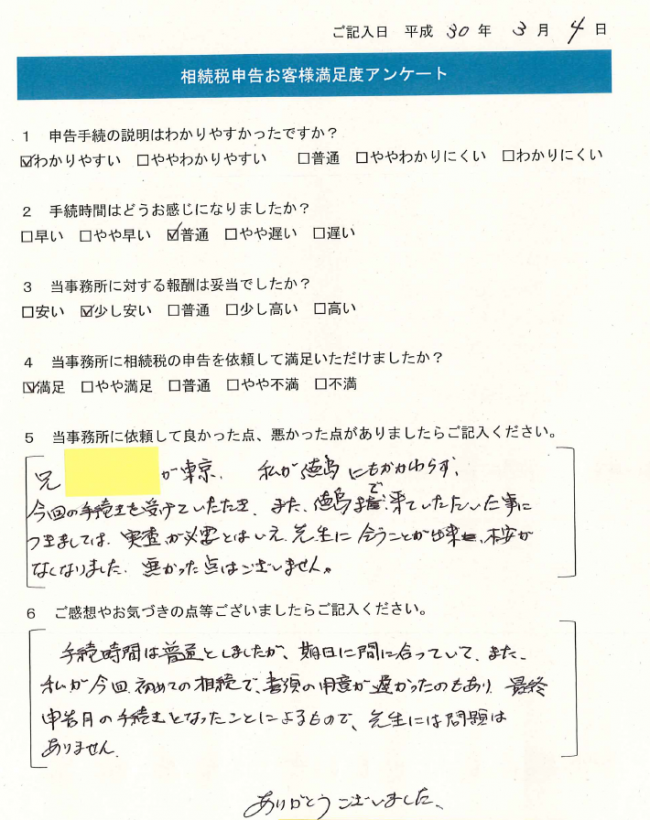 ご記入日 平成 30 年 3 月 4 日
相続税申告お客様満足度アンケート
1 申告手続の説明はわかりやすかったですか?
☑わかりやすい □ややわかりやすい □普通 □ややわかりにくい □わかりにくい
2 手続時間はどうお感じになりましたか?
□早い □やや早い ☑普通 □やや遅い □遅い
3 当事務所に対する報酬は妥当でしたか?
□安い ☑少し安い □普通 □少し高い □高い
4 当事務所に相続税の申告を依頼して満足いただけましたか?
☑満足 □やや満足 □普通 □やや不満 □不満
5 当事務所に依頼して良かった点、悪かった点がありましたらご記入ください。
兄 が東京、私が徳島にもかかわらず、
今回の手続きを受けていただき、また、徳島まで来ていただいた事に
つきましては、実査が必要とはいえ、先生に会うことが出来、不安が
なくなりました。悪かった点はございません。
6 ご感想やお気づきの点等ございましたらご記入ください。
手続時間は普通としましたが、期日に間に合っていて、また、
私が今回初めての相続で、書類の用意が遅かったのもあり、最終
申告月の手続きとなったことによるもので、先生には問題は
ありません。
ありがとうございました。